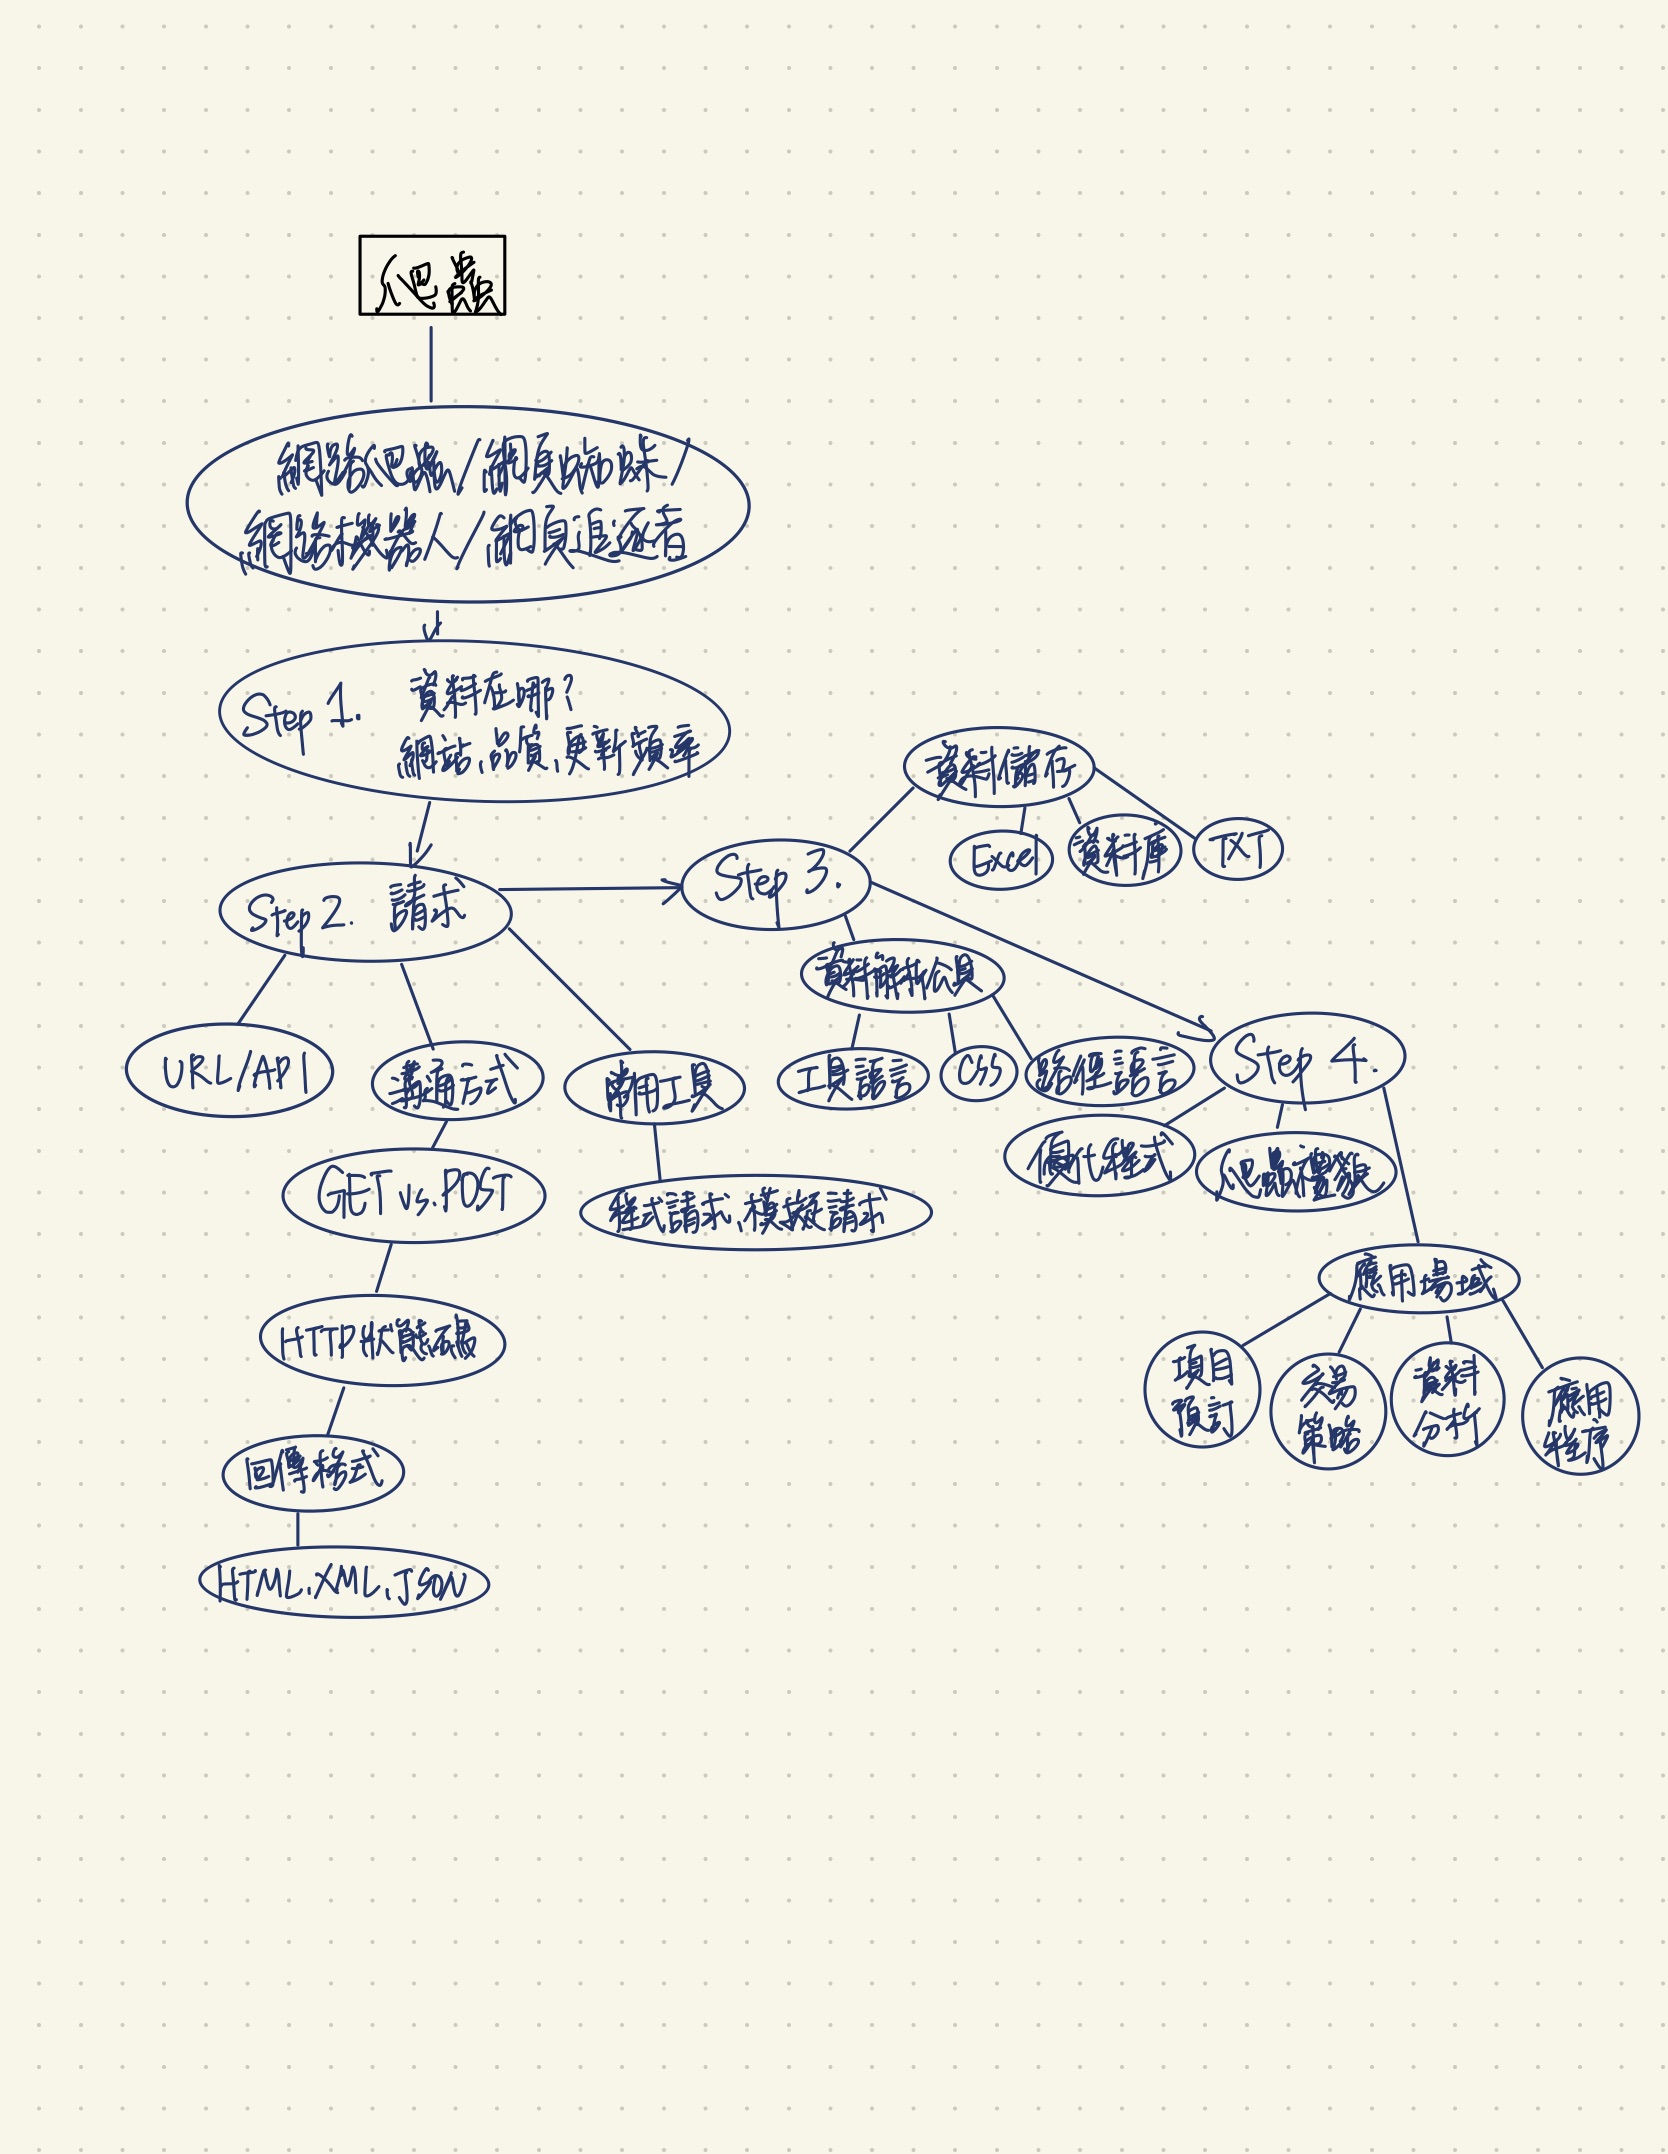 爬蟲
網路爬蟲/網頁蜘蛛/
網路機器人/網頁追逐者
Step 1. 資料在哪?
網站、品質、更新頻率
Step 2. 請求
URL/API
溝通方式
GET vs. POST
HTTP狀態碼
回傳格式
HTML、XML、JSON
常用工具
程式請求、模擬請求
Step 3.
資料儲存
Excel
資料庫
TXT
資料解析工具
工具語言
CSS
路徑語言
Step 4.
優化程式
爬蟲禮貌
應用場域
項目
預訂
交易
策略
資料
分析
應用
程序